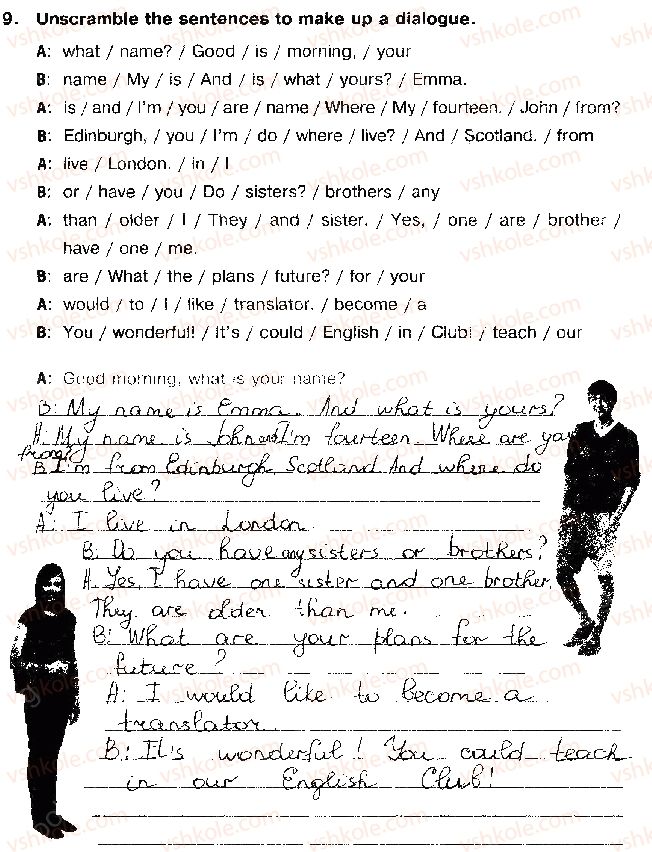 9. Unscramble the sentences to make up a dialogue.
A: what / name? / Good / is / morning, / your
B: name / My / is / And / is / what / yours? / Emma.
A: is / and / I'm / you / are / name / Where / My / fourteen. / John / from?
B: Edinburgh, / you / I'm / do / where / live? / And / Scotland. / from
A: live / London. / in / I
B: or / have / you / Do / sisters? / brothers / any
A: than / older / I / They / and / sister. / Yes, / one / are / brother /
have / one / me.
B: are / What / the / plans / future? / for / your
A: would / to / I / like / translator. / become / a
B: You / wonderful! / It's / could / English / in / Club! / teach / our
A: Good morning, what is your name?
B: My name is Emma. And what is yours?
A: My name is John and I'm fourteen. Where are you
from?
B: I'm from Edinburgh, Scotland. And where do
you live?
A: I live in London.
B: Do you have any sisters or brothers?
A: Yes, I have one sister and one brother.
They are older than me.
B: What are your plans for the
future?
A: I would like to become a
translator.
B: It's wonderful! You could teach
in our English Club!